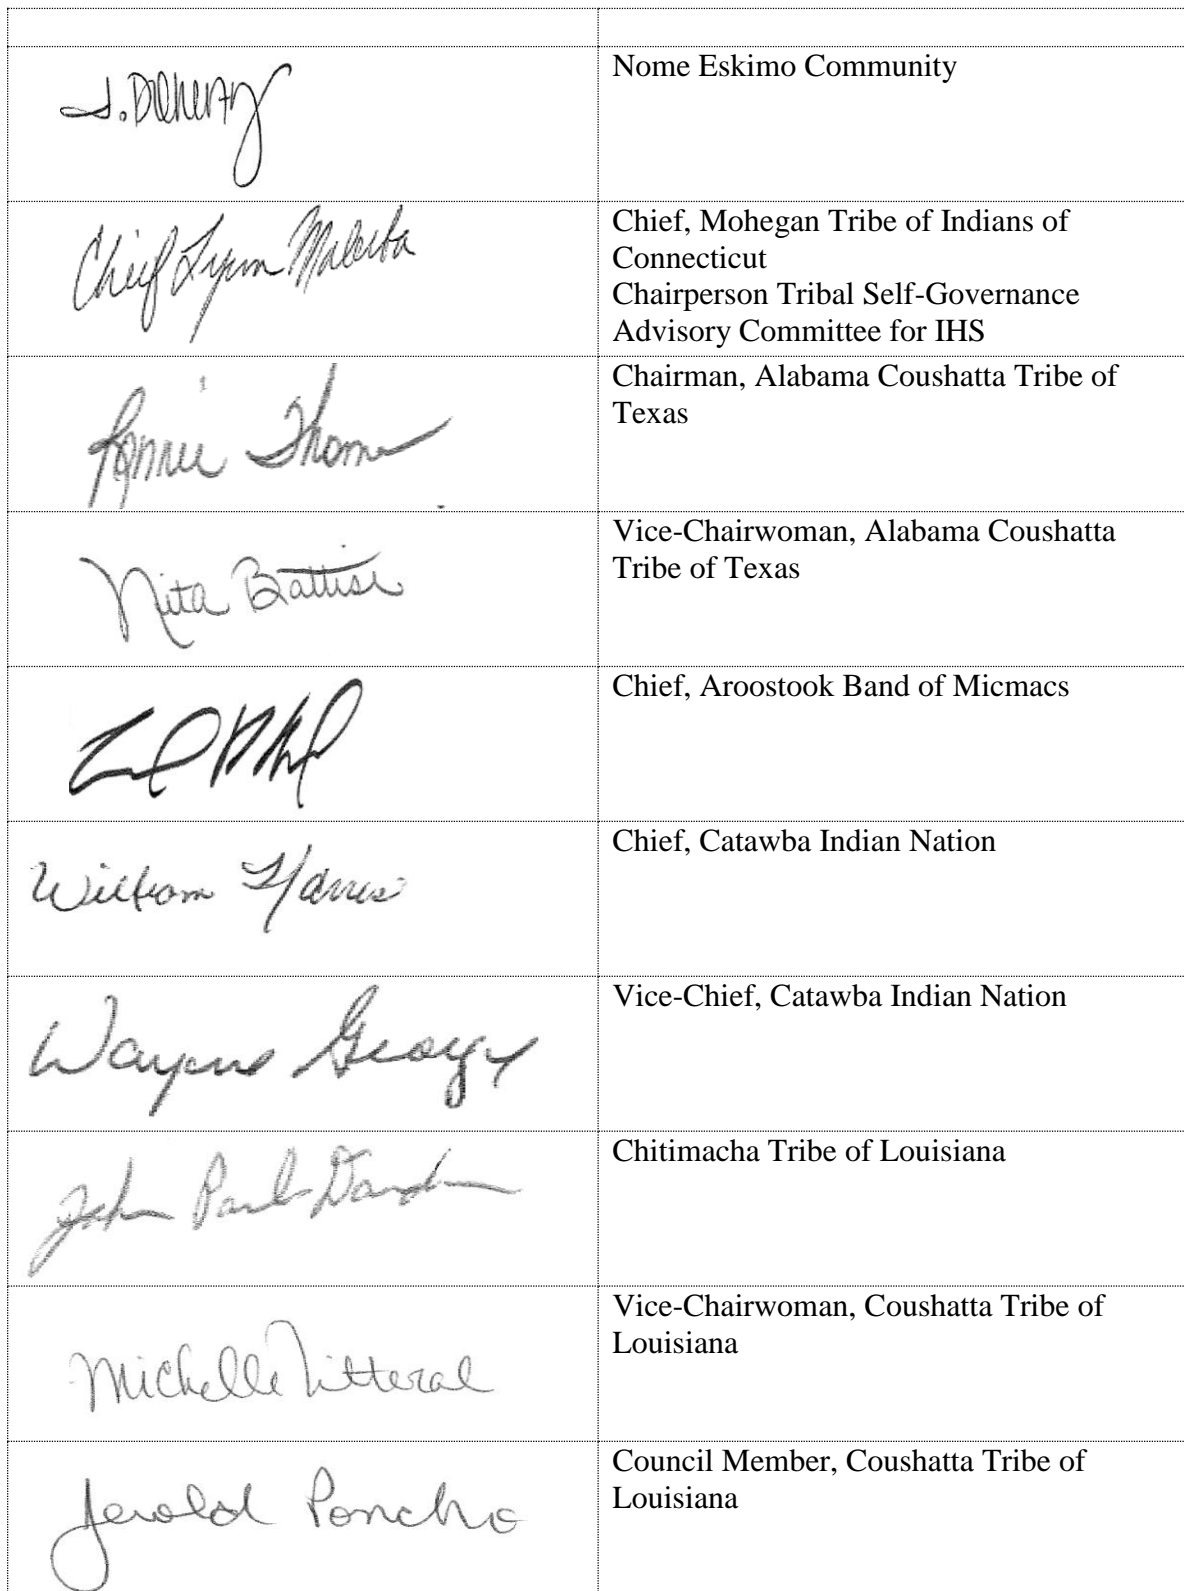 J. Doherty
Nome Eskimo Community
Chief Lynn Malerba
Chief, Mohegan Tribe of Indians of
Connecticut
Chairperson Tribal Self-Governance
Advisory Committee for IHS
Ronnie Thomas
Chairman, Alabama Coushatta Tribe of
Texas
Nita Battise
Vice-Chairwoman, Alabama Coushatta
Tribe of Texas
Chief, Aroostook Band of Micmacs
William Harris
Chief, Catawba Indian Nation
Wayne George
Vice-Chief, Catawba Indian Nation
John Paul Darden
Chitimacha Tribe of Louisiana
Michelle Litteral
Vice-Chairwoman, Coushatta Tribe of
Louisiana
Jerold Poncho
Council Member, Coushatta Tribe of
Louisiana